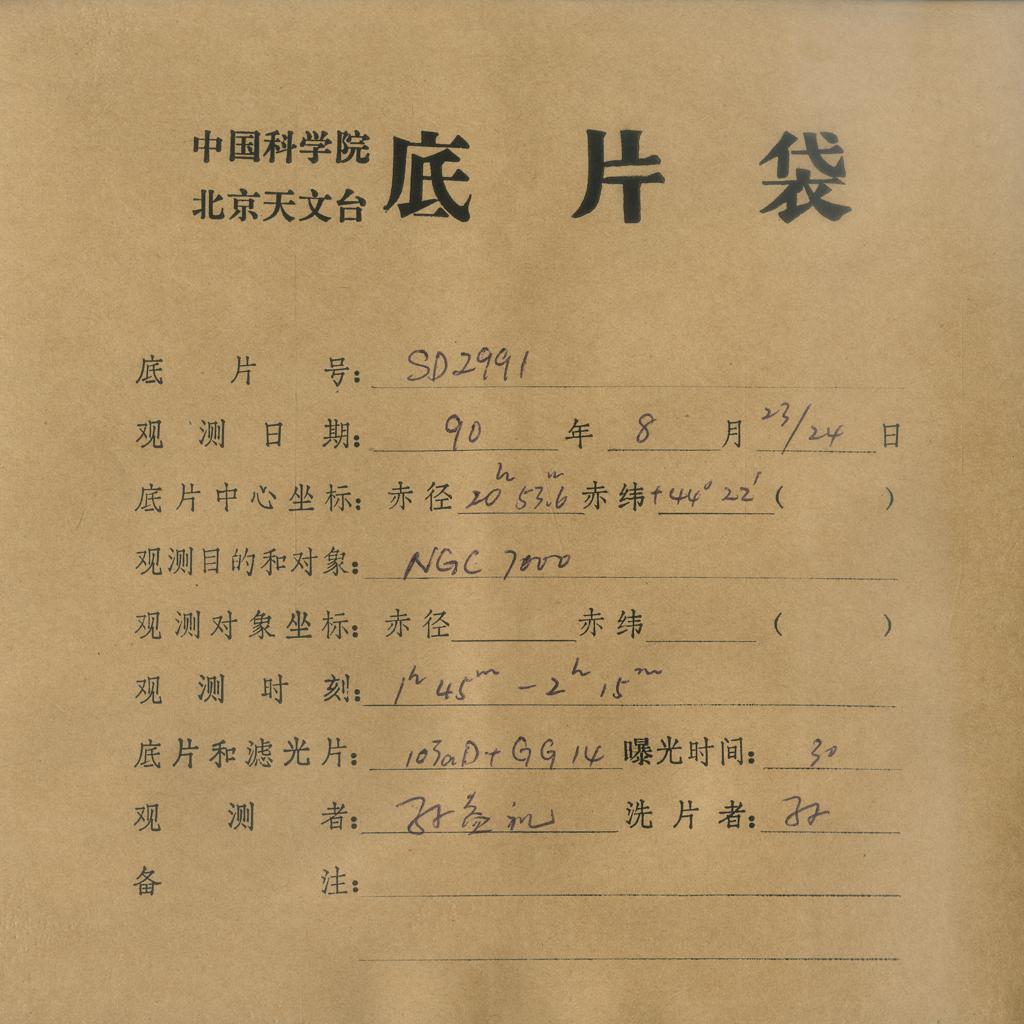 中国科学院
北京天文台
底片袋
底片号: SD2991
观测日期: 90 年 8 月 23/24 日
底片中心坐标: 赤径 20h 53m.6 赤纬 +44° 22′ ( )
观测目的和对象: NGC 7000
观测对象坐标: 赤径 赤纬 ( )
观测时刻: 1h 45m - 2h 15m
底片和滤光片: 103aD + GG 14 曝光时间: 30
观测者: 孙益礼 洗片者: 孙
备注: